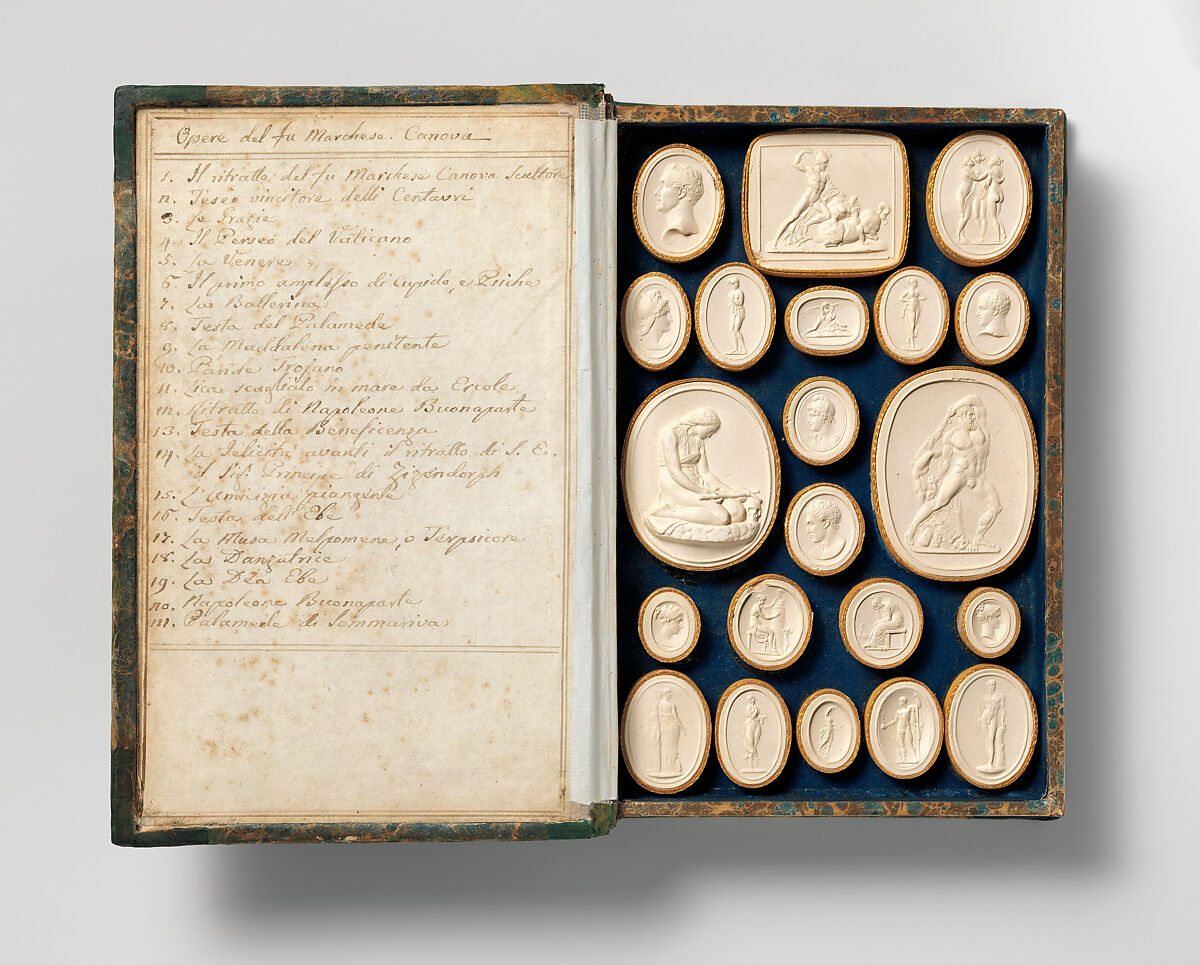 Opere del fu Marchese. Canova
1. Il ritratto del fu Marchese Canova Scultore
n. Teseo vincitore delli Centauri
3. le Grazie
4. Il Perseo del Vaticano
5. La Venere
6. Il primo amplesso di Cupido, e Psiche
7. La Ballerina
8. Testa del Palamede
9. La Maddalena penitente
10. Paride Trojano
11. Lica scagliato in mare da Ercole
1n. Ritratto di Napoleone Buonaparte
13. Testa della Beneficenza
14. La Felicità avanti il ritratto di S. E.
il Principe di Zizendorph
15. L'Amicizia piangente
16. Testa dell'Ebe
17. La Musa Melpomene, o Terpsicore
18. La Danzatrice
19. La Dea Ebe
no. Napoleone Buonaparte
n1. Palamede di Sommariva